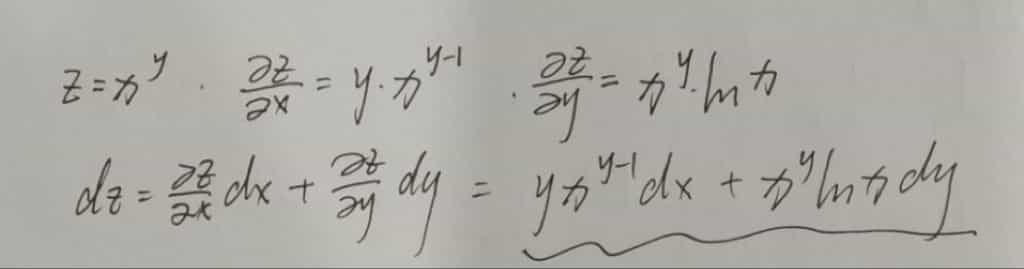 z = x^y . ∂z/∂x = y·x^(y-1) . ∂z/∂y = x^y·ln x
dz = ∂z/∂x dx + ∂z/∂y dy = yx^(y-1)dx + x^y ln x dy